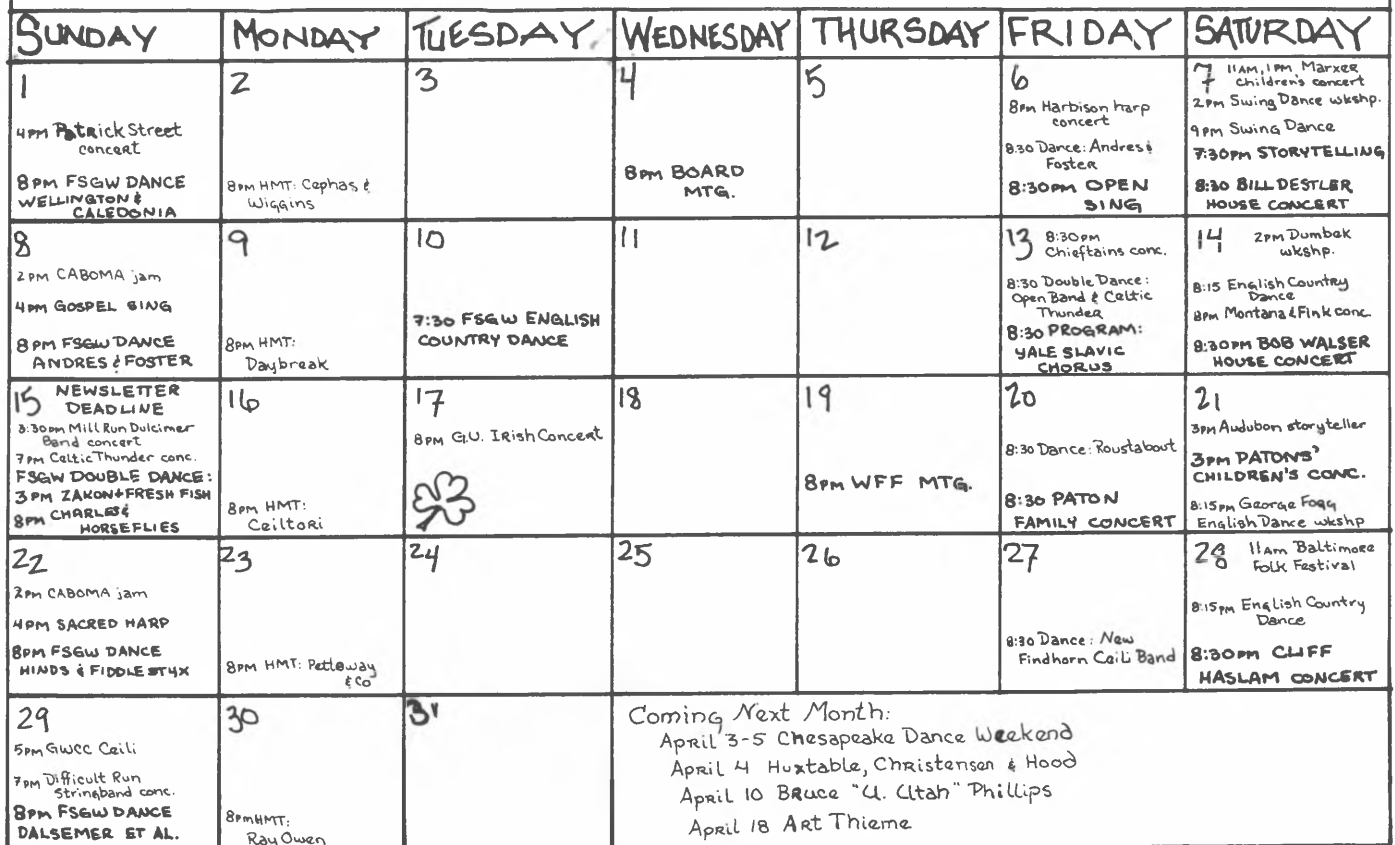 SUNDAY MONDAY TUESDAY WEDNESDAY THURSDAY FRIDAY SATURDAY
1
4PM Patrick Street
concert
8PM FSGW DANCE
WELLINGTON &
CALEDONIA
2
8PM HMT: Cephas &
Wiggins
3
4
8PM BOARD
MTG.
5
6
8PM Harbison harp
concert
8:30 Dance: Andres &
Foster
8:30PM OPEN
SING
7 11AM, 1PM Marxer
Children's concert
2PM Swing Dance wkshp.
9PM Swing Dance
7:30PM STORYTELLING
8:30 BILL DESTLER
HOUSE CONCERT
8
2PM CABOMA jam
4PM GOSPEL SING
8PM FSGW DANCE
ANDRES & FOSTER
9
8PM HMT:
Daybreak
10
7:30 FSGW ENGLISH
COUNTRY DANCE
11
12
13 8:30PM
Chieftains conc.
8:30 Double Dance:
Open Band & Celtic
Thunder
8:30 PROGRAM:
YALE SLAVIC
CHORUS
14 2PM Dumbek
wkshp.
8:15 English Country
Dance
8PM Montana & Fink conc.
8:30PM BOB WALSER
HOUSE CONCERT
15 NEWSLETTER
DEADLINE
3:30PM Mill Run Dulcimer
Band concert
7PM Celtic Thunder conc.
FSGW DOUBLE DANCE:
3PM ZAKON & FRESH FISH
8PM CHARLES &
HORSEFLIES
16
8PM HMT:
Ceiltori
17
8PM G.U. Irish Concert
18
19
8PM WFF MTG.
20
8:30 Dance: Roustabout
8:30 PATON
FAMILY CONCERT
21
3PM Audubon storyteller
3PM PATONS'
CHILDREN'S CONC.
8:15PM George Fogg
English Dance wkshp
22
2PM CABOMA jam
4PM SACRED HARP
8PM FSGW DANCE
HINDS & FIDDLESTYX
23
8PM HMT: Petteway
& Co
24
25
26
27
8:30 Dance: New
Findhorn Ceili Band
28 11AM Baltimore
Folk Festival
8:15PM English Country
Dance
8:30PM CLIFF
HASLAM CONCERT
29
5PM GWCC Ceili
7PM Difficult Run
Stringband conc.
8PM FSGW DANCE
DALSEMER ET AL.
30
8PM HMT:
Ray Owen
31
Coming Next Month:
April 3-5 Chesapeake Dance Weekend
April 4 Huxtable, Christensen & Hood
April 10 Bruce "U. Utah" Phillips
April 18 Art Thieme